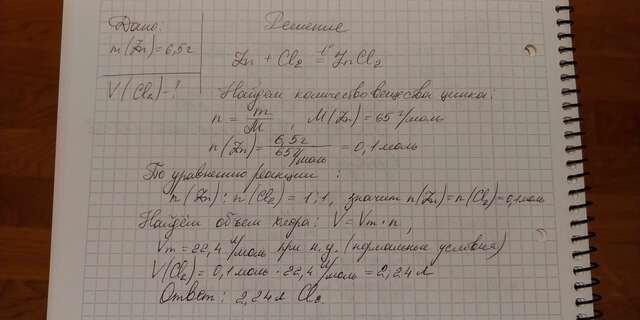 Дано:
m(Zn)=6,5г
V(Cl₂)-?
Решение
Zn + Cl₂ =^t° ZnCl₂
Найдём количество вещества цинка:
n = m/M , M(Zn)=65 г/моль
n(Zn)= 6,5г/65г/моль = 0,1 моль
По уравнению реакции:
n(Zn) : n(Cl₂) = 1:1, значит n(Zn)=n(Cl₂)=0,1моль
Найдём объем хлора: V=Vm·n,
Vm=22,4 л/моль при н.у. (нормальные условия)
V(Cl₂)= 0,1моль·22,4 л/моль=2,24л
Ответ: 2,24л Cl₂.